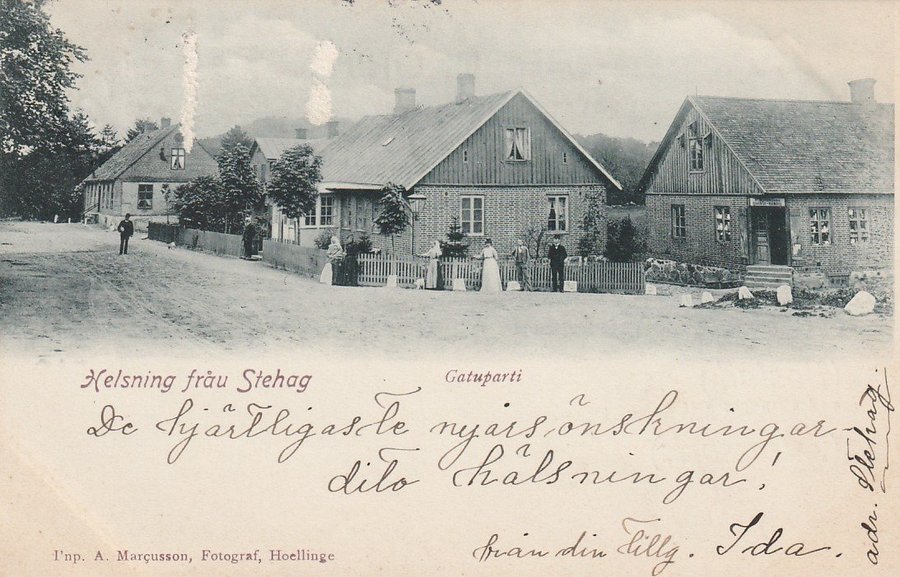 Helsning fråu Stehag
Gatuparti
De hjärtligaste nyårsönskningar
dito hälsningar!
från din Tilly. Ida.
adr. Stehag.
I'np. A. Marçusson, Fotograf, Hoellinge